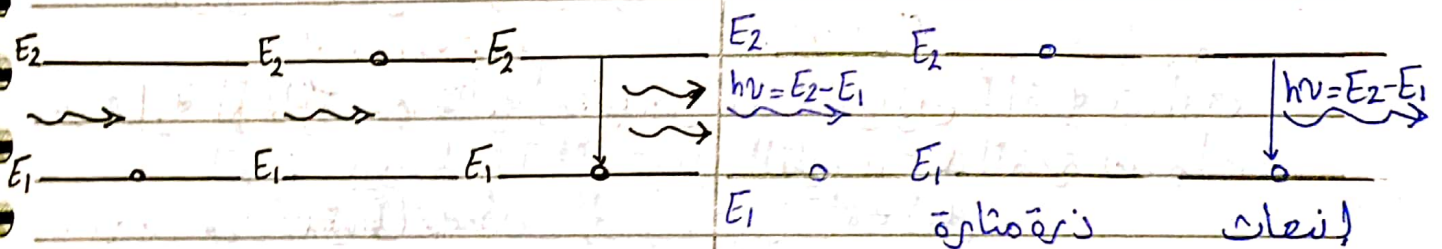 E₂ E₂ E₂ E₂ E₂
hν=E₂-E₁ hν=E₂-E₁
E₁ E₁ E₁ E₁
E₁
ذرة متارة إنبعاث